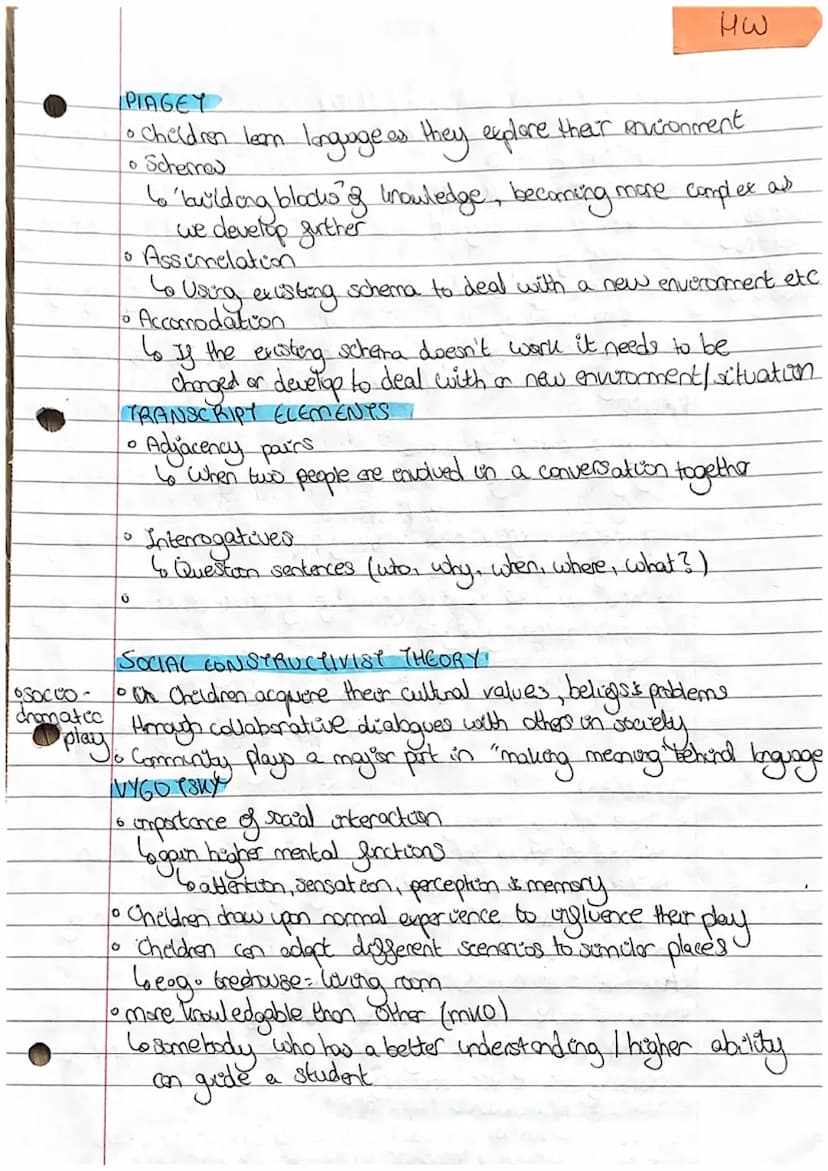 HW
PIAGEY
◦ Children learn language as they explore their environment
◦ Schemas
↳ "building blocks" of knowledge, becoming more complex as
we develop further
◦ Assimelation
↳ Using existing schema to deal with a new enveronment etc
◦ Accomodation
↳ If the existing schema doesn't work it needs to be
changed or develop to deal with a new environment/situation
TRANSCRIPT ELEMENTS
◦ Adjacency pairs
↳ When two people are envolved in a conversation together
◦ Interrogatives
↳ Question sentences (who, why, when, where, what?)
◦
SOCIAL CONSTRUCTIVIST THEORY
◦ Children acquere their cultural values, beliefs & problems
through collaborative dialogues with others in society
◦ socio-
dramatic
play
◦ Community plays a major part in "making meaning" behind language
VYGOTSKY
◦ importance of social interaction
↳ gain higher mental functions
↳ attention, sensation, perception & memory
◦ Children draw upon normal experience to influence their play
◦ Children can adapt different scenarios to similar places
↳ e.g. treehouse = living room
◦ more knowledgable than other (MKO)
↳ somebody who has a better understanding / higher ability
can guide a student